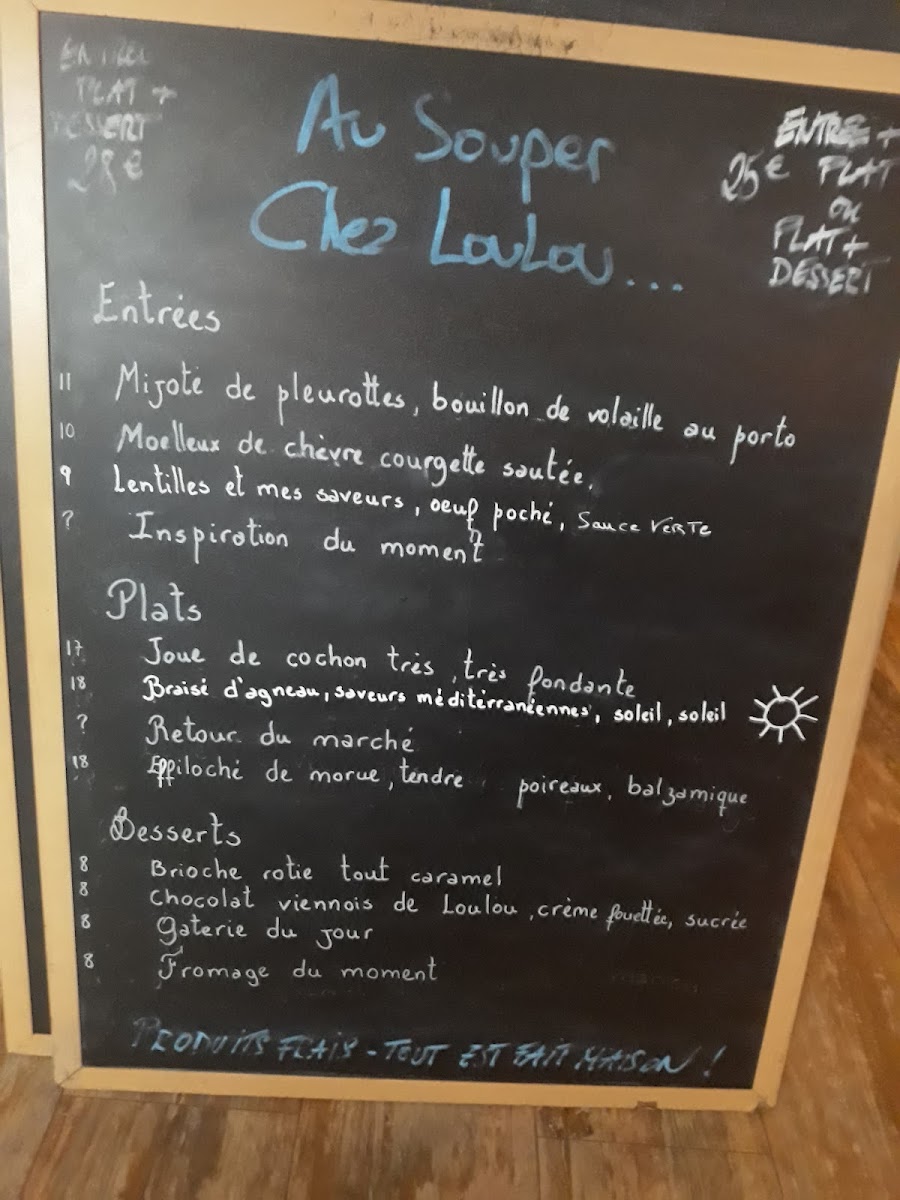 ENTREE
PLAT +
DESSERT
28€
Au Souper
Chez LouLou...
ENTREE +
25€ PLAT
ou
PLAT +
DESSERT
Entrées
11 Mijoté de pleurottes, bouillon de volaille au porto
10 Moelleux de chèvre courgette sautée.
9 Lentilles et mes saveurs, oeuf poché, Sauce VERTE
? Inspiration du moment
Plats
17 Joue de cochon très, très fondante
18 Braisé d'agneau, saveurs méditérranéennes, soleil, soleil
? Retour du marché
18 Effiloché de morue, tendre poireaux, balzamique
Desserts
8 Brioche rotie tout caramel
8 Chocolat viennois de Loulou, crème fouettée, sucrée
8 gaterie du jour
8 Fromage du moment
PRODUITS FRAIS - TOUT EST FAIT MAISON !